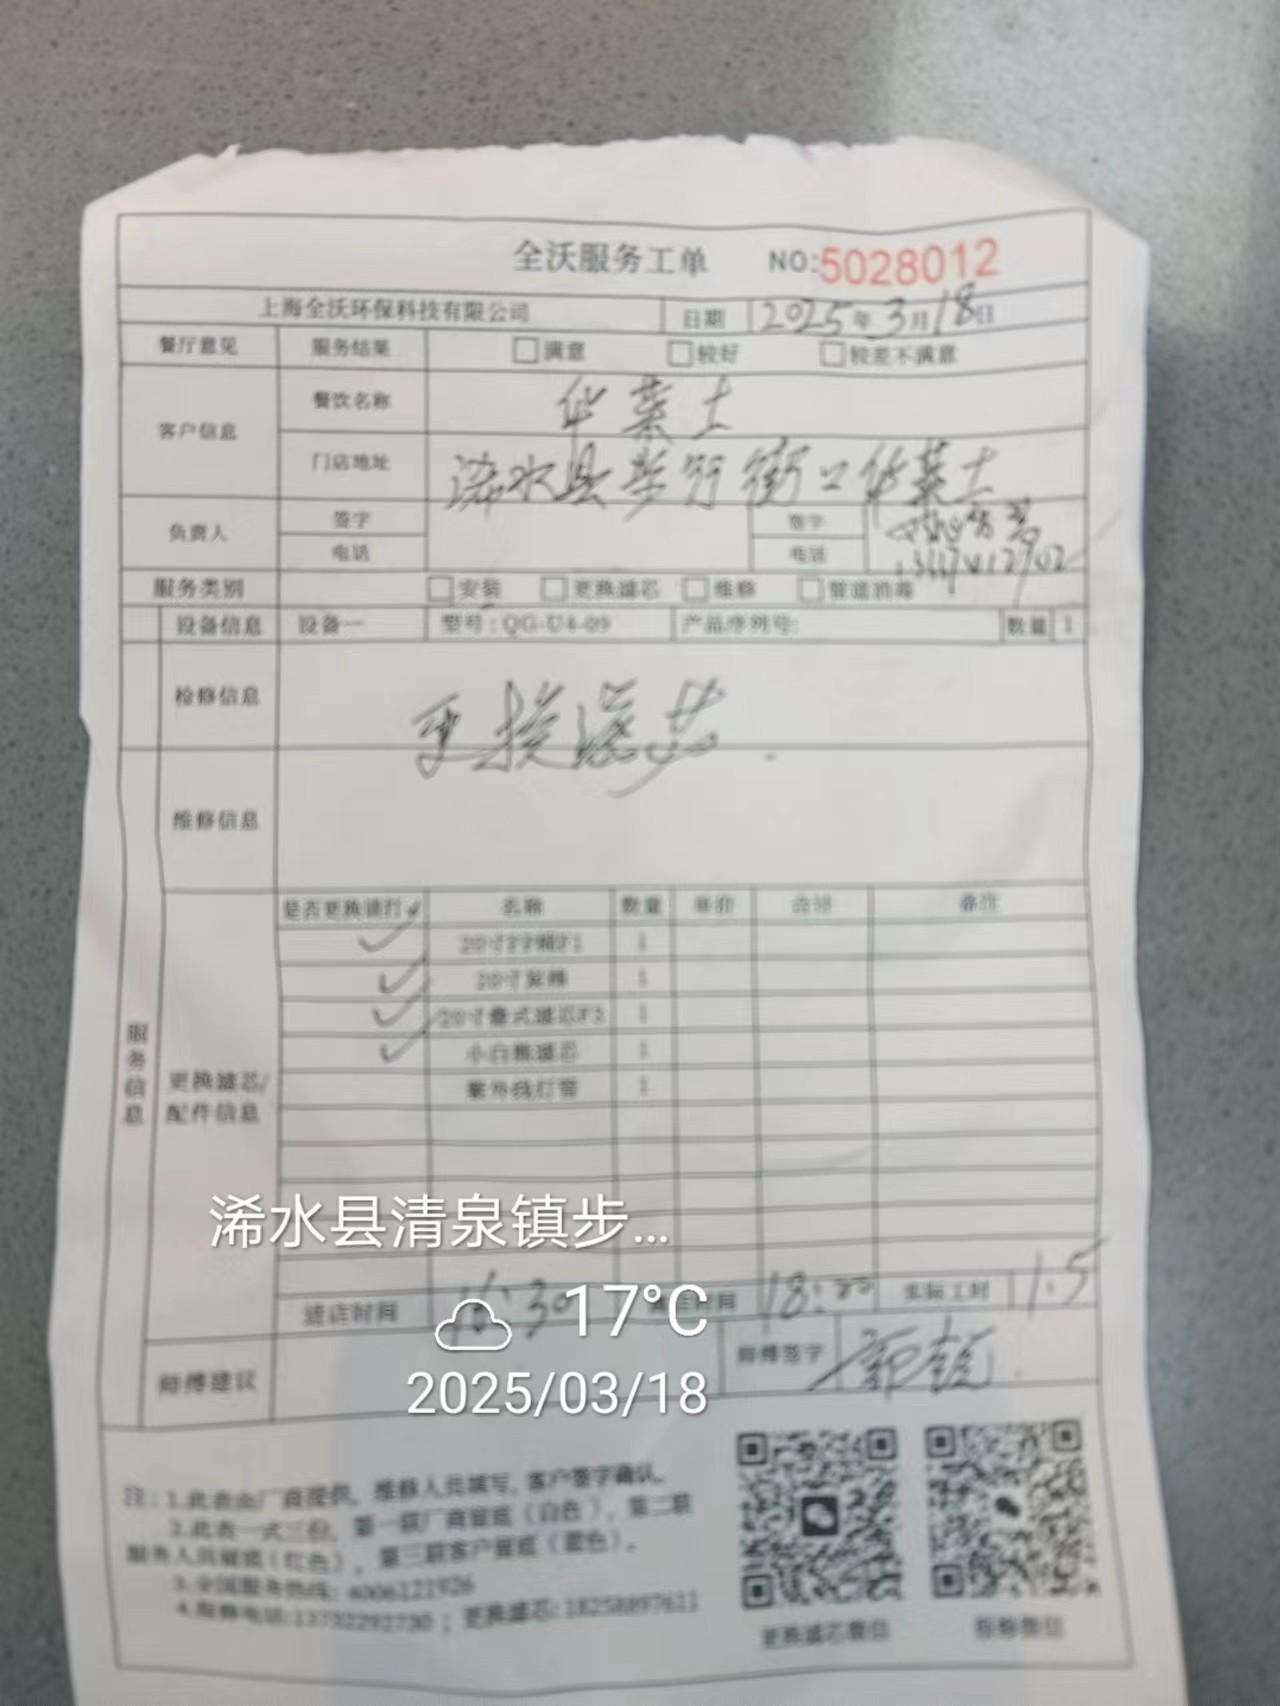 全沃服务工单 NO:5028012
上海全沃环保科技有限公司 日期 2025年3月18日
餐厅意见 服务结果 满意 较好 较差不满意
客户信息 餐饮名称 华莱士
门店地址 浠水县 街口华莱士
负责人 签字 签字
电话 电话
服务类别 安装 更换滤芯 维修 管道消毒
设备信息 设备一 型号:QG-U4-09 产品序列号: 数量 1
检修信息 更换滤芯.
维修信息
服务信息
更换滤芯/配件信息
是否更换请打✓ 名称 数量 单价 合计 备注
✓ 1
✓ 20寸炭棒 1
✓ 20寸叠式滤芯 1
✓ 小白熊滤芯 1
紫外线灯管 1
浠水县清泉镇步...
进店时间 16:30 时间 18:00 实际工时 1.5
17°C
师傅建议 师傅签字 郭锐
2025/03/18
注:1.此表由厂商提供,维修人员填写,客户签字确认。
2.此表一式三份,第一联厂商留底(白色),第二联
服务人员留底(红色),第三联客户留底(蓝色)。
3.全国服务热线: 4006121926
4.报修电话:13732292730 ; 更换滤芯: 18258897611
更换滤芯微信 报修微信